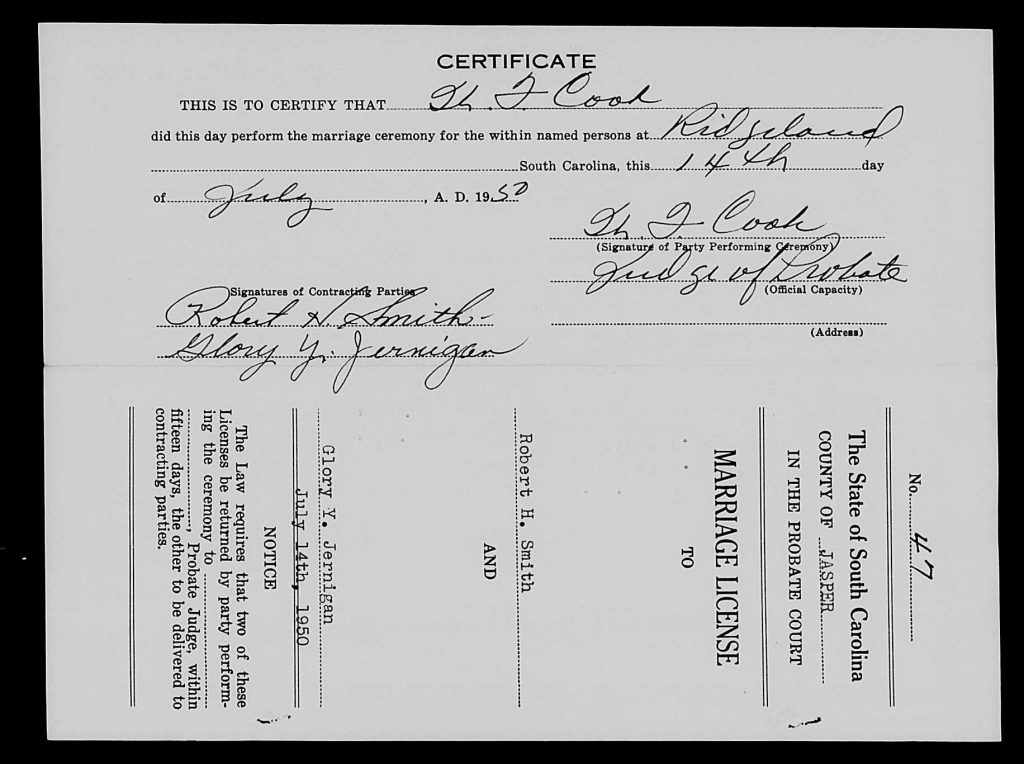 CERTIFICATE
THIS IS TO CERTIFY THAT Th. F Cook
did this day perform the marriage ceremony for the within named persons at Ridgeland
South Carolina, this 14th day
of July, A. D. 1950
Th. F. Cook
(Signature of Party Performing Ceremony)
Judge of Probate
(Official Capacity)
(Address)
Signatures of Contracting Parties
Robert H. Smith
Glory Y. Jernigan
No. 47
The State of South Carolina
COUNTY OF JASPER
IN THE PROBATE COURT
MARRIAGE LICENSE
TO
Robert H. Smith
AND
Glory Y. Jernigan
July 14th, 1950
NOTICE
The Law requires that two of these
Licenses be returned by party perform-
ing the ceremony to
, Probate Judge, within
fifteen days, the other to be delivered to
contracting parties.